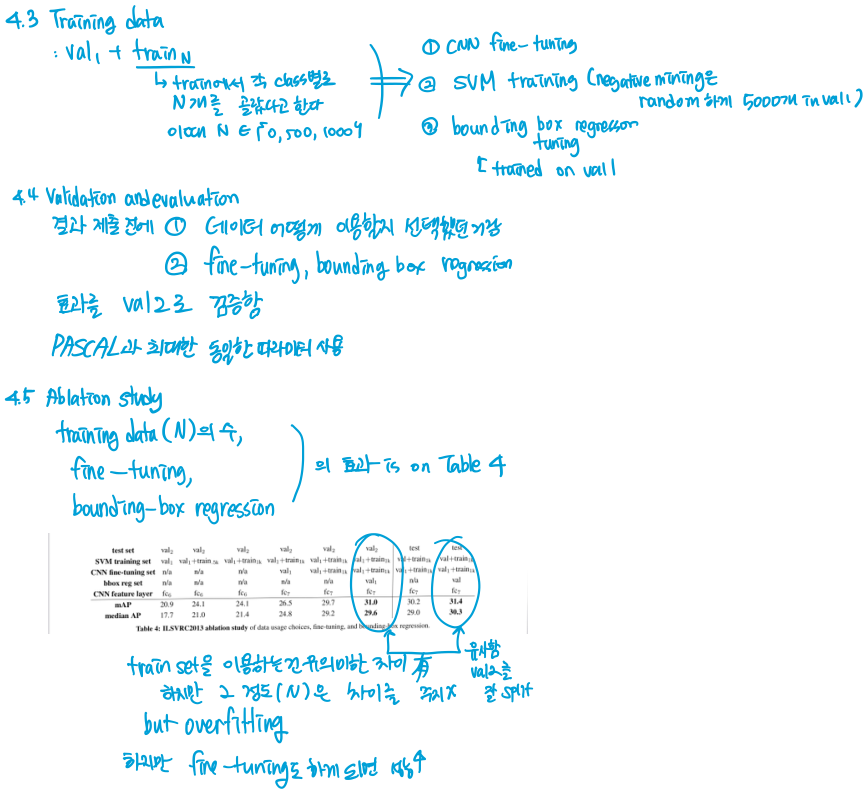 4.3 Training data
: val₁ + train_N
↳ train에서 각 class별로
N개를 골랐다고 한다
이때 N ∈ {0, 500, 1000}
① CNN fine-tuning
② SVM training (negative mining은
random하게 5000개 in val1)
③ bounding box regression
tuning
[ trained on val1
4.4 Validation and evaluation
결과 제출 전에 ① 데이터 어떻게 이용할지 선택했던거랑
② fine-tuning, bounding box regression
효과를 val2로 검증함
PASCAL과 최대한 동일한 파라미터 사용
4.5 Ablation study
training data (N)의 수,
fine-tuning,
bounding-box regression
의 효과 is on Table 4
test set val₂ val₂ val₂ val₂ val₂ val₂ test test
SVM training set val₁ val₁+train.₅ₖ val₁+train₁ₖ val₁+train₁ₖ val₁+train₁ₖ val₁+train₁ₖ val+train₁ₖ val+train₁ₖ
CNN fine-tuning set n/a n/a n/a val₁ val₁+train₁ₖ val₁+train₁ₖ val₁+train₁ₖ val₁+train₁ₖ
bbox reg set n/a n/a n/a n/a n/a val₁ n/a val
CNN feature layer fc₆ fc₆ fc₆ fc₇ fc₇ fc₇ fc₇ fc₇
mAP 20.9 24.1 24.1 26.5 29.7 31.0 30.2 31.4
median AP 17.7 21.0 21.4 24.8 29.2 29.6 29.0 30.3
Table 4: ILSVRC2013 ablation study of data usage choices, fine-tuning, and bounding-box regression.
유사함
val2를
잘 split
train set을 이용하는건 유의미한 차이 有
하지만 그 정도(N)은 차이를 주지 X
but overfitting
하지만 fine-tuning도 하게 되면 성능↑